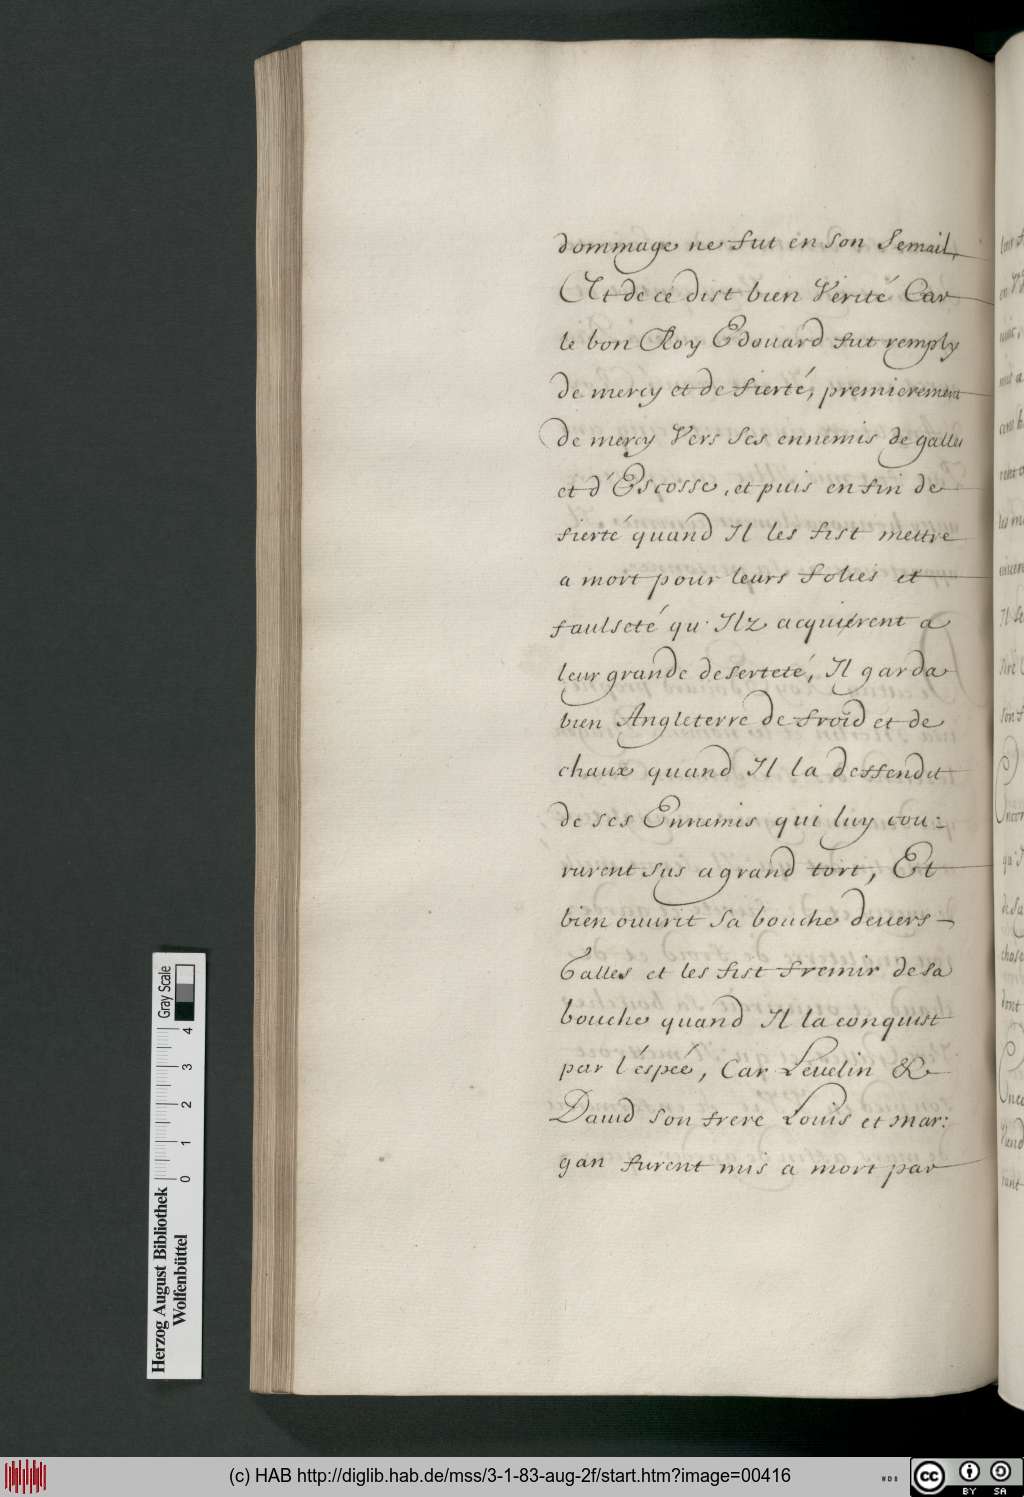 dommage ne fut en son Semail,
Et de cé dist bien Verité Car
le bon Roy Edouard fut remply
de mercy et de fierté, premierement
de mercy Vers Ses ennemis de galles
et d'Escosse, et puis en fin de
fierté quand Il les fist mettre
a mort pour leurs folies et
faulseté qu'Ilz acquirent a
leur grande deserteté, Il garda
bien Angleterre de froid et de
chaux quand Il la deffendit
de ses Ennemis qui luy cou:
rurent sus a grand tort, Et
bien ouurit Sa bouche deuers
Galles et les fist fremir de sa
bouche quand Il la conquist
par l'éspéé, Car Leuelin &
Dauid son frere Louis et mar:
gan furent mis a mort par
Herzog August Bibliothek
Wolfenbüttel
0 1 2 3 4
Gray Scale
(c) HAB http://diglib.hab.de/mss/3-1-83-aug-2f/start.htm?image=00416
WDB
cc
BY SA